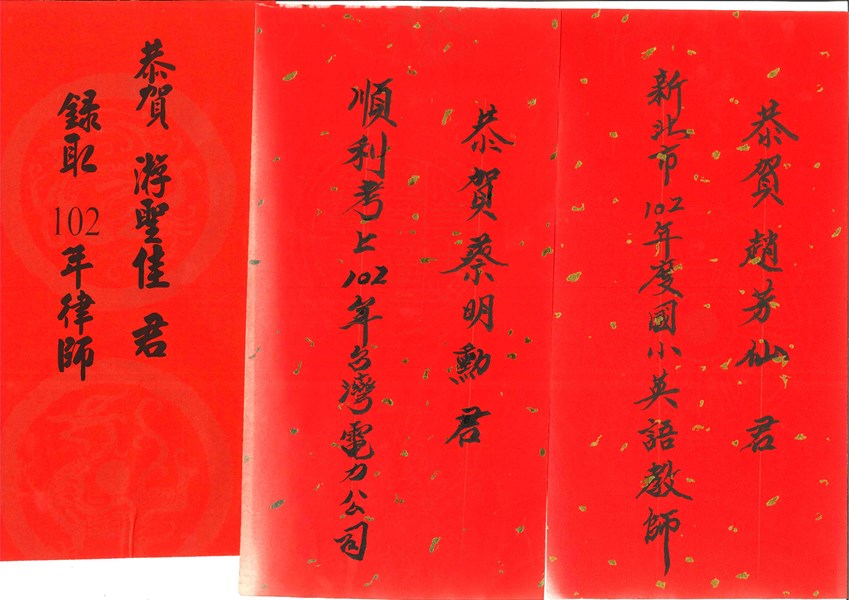 恭賀趙芳仙 君
新北市102年度國小英語教師
恭賀蔡明勳君
順利考上102年台灣電力公司
恭賀 游聖佳 君
錄取 102年律師